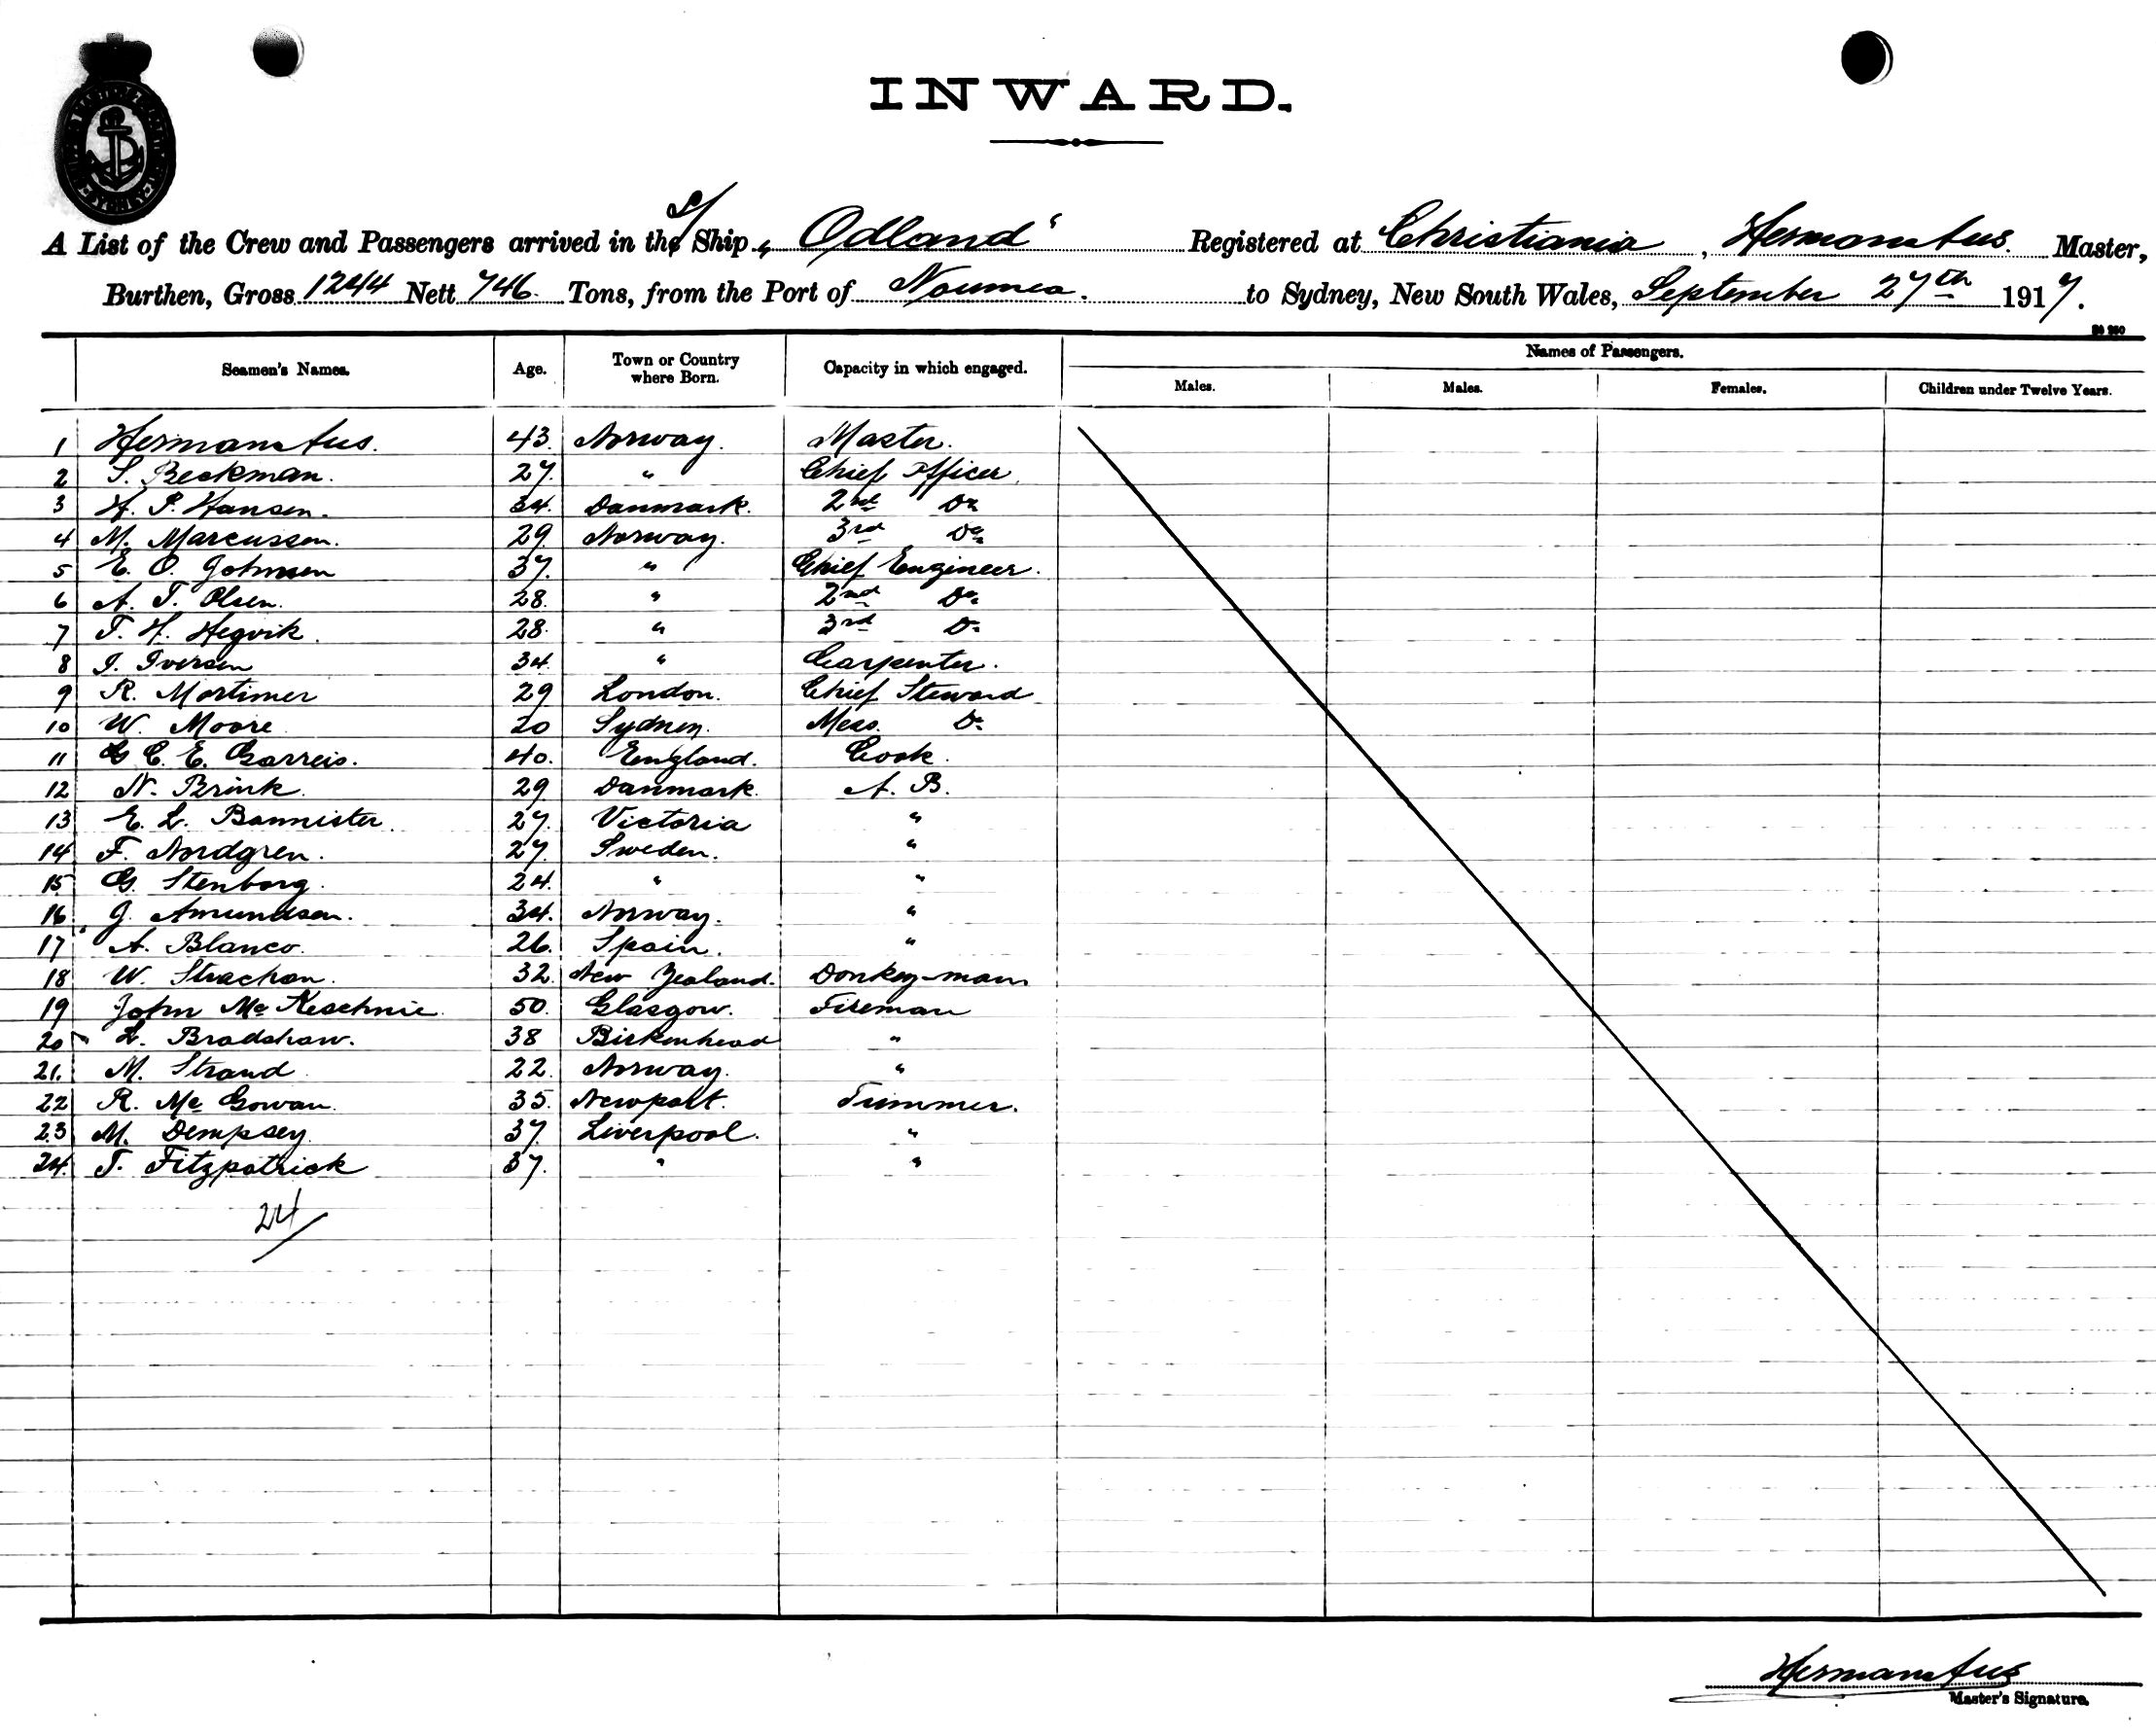 INWARD.
A List of the Crew and Passengers arrived in the S/ Ship „ Odland " Registered at Christiania , Hermanstus. Master,
Burthen, Gross 1244 Nett 746. Tons, from the Port of Noumea. to Sydney, New South Wales, September 27th 1917.
Seamen's Names. Age. Town or Country where Born. Capacity in which engaged. Names of Passengers.
Males. Males. Females. Children under Twelve Years.
1 Hermanstus. 43. Norway. Master.
2 S. Beckman. 27. " Chief Officer.
3 H. P. Hansen. 34. Danmark. 2nd Do
4 M. Marcussen. 29 Norway. 3rd Do
5 E. O. Johnsen 37. " Chief Engineer.
6 A. T. Olsen. 28. " 2nd Do
7 T. H. Hegvik. 28. " 3rd Do
8 I. Iversen 34. " Carpenter.
9 R. Mortimer 29 London. Chief Steward
10 W. Moore 20 Sydney. Mess. Do
11 G C. E. Garreis. 40. England. Cook.
12 N. Brink. 29 Danmark. A. B.
13 E. L. Bannister. 27. Victoria "
14 F. Nordgren. 27. Sweden. "
15 G. Stenborg. 24. " "
16. J. Amundsen. 34. Norway. "
17 A. Blanco. 26. Spain. "
18 W. Strachan. 32. New Zealand. Donkey-man
19 John Mc Keschnie. 50. Glasgow. Fireman
20 L. Bradshaw. 38 Birkenhead "
21. M. Strand 22. Norway. "
22 R. Mc Gowan. 35. Newpolt. Trimmer.
23 M. Dempsey. 37. Liverpool. "
24. T. Fitzpatrick 37. " "
24/
Hermanstus
Master's Signature.